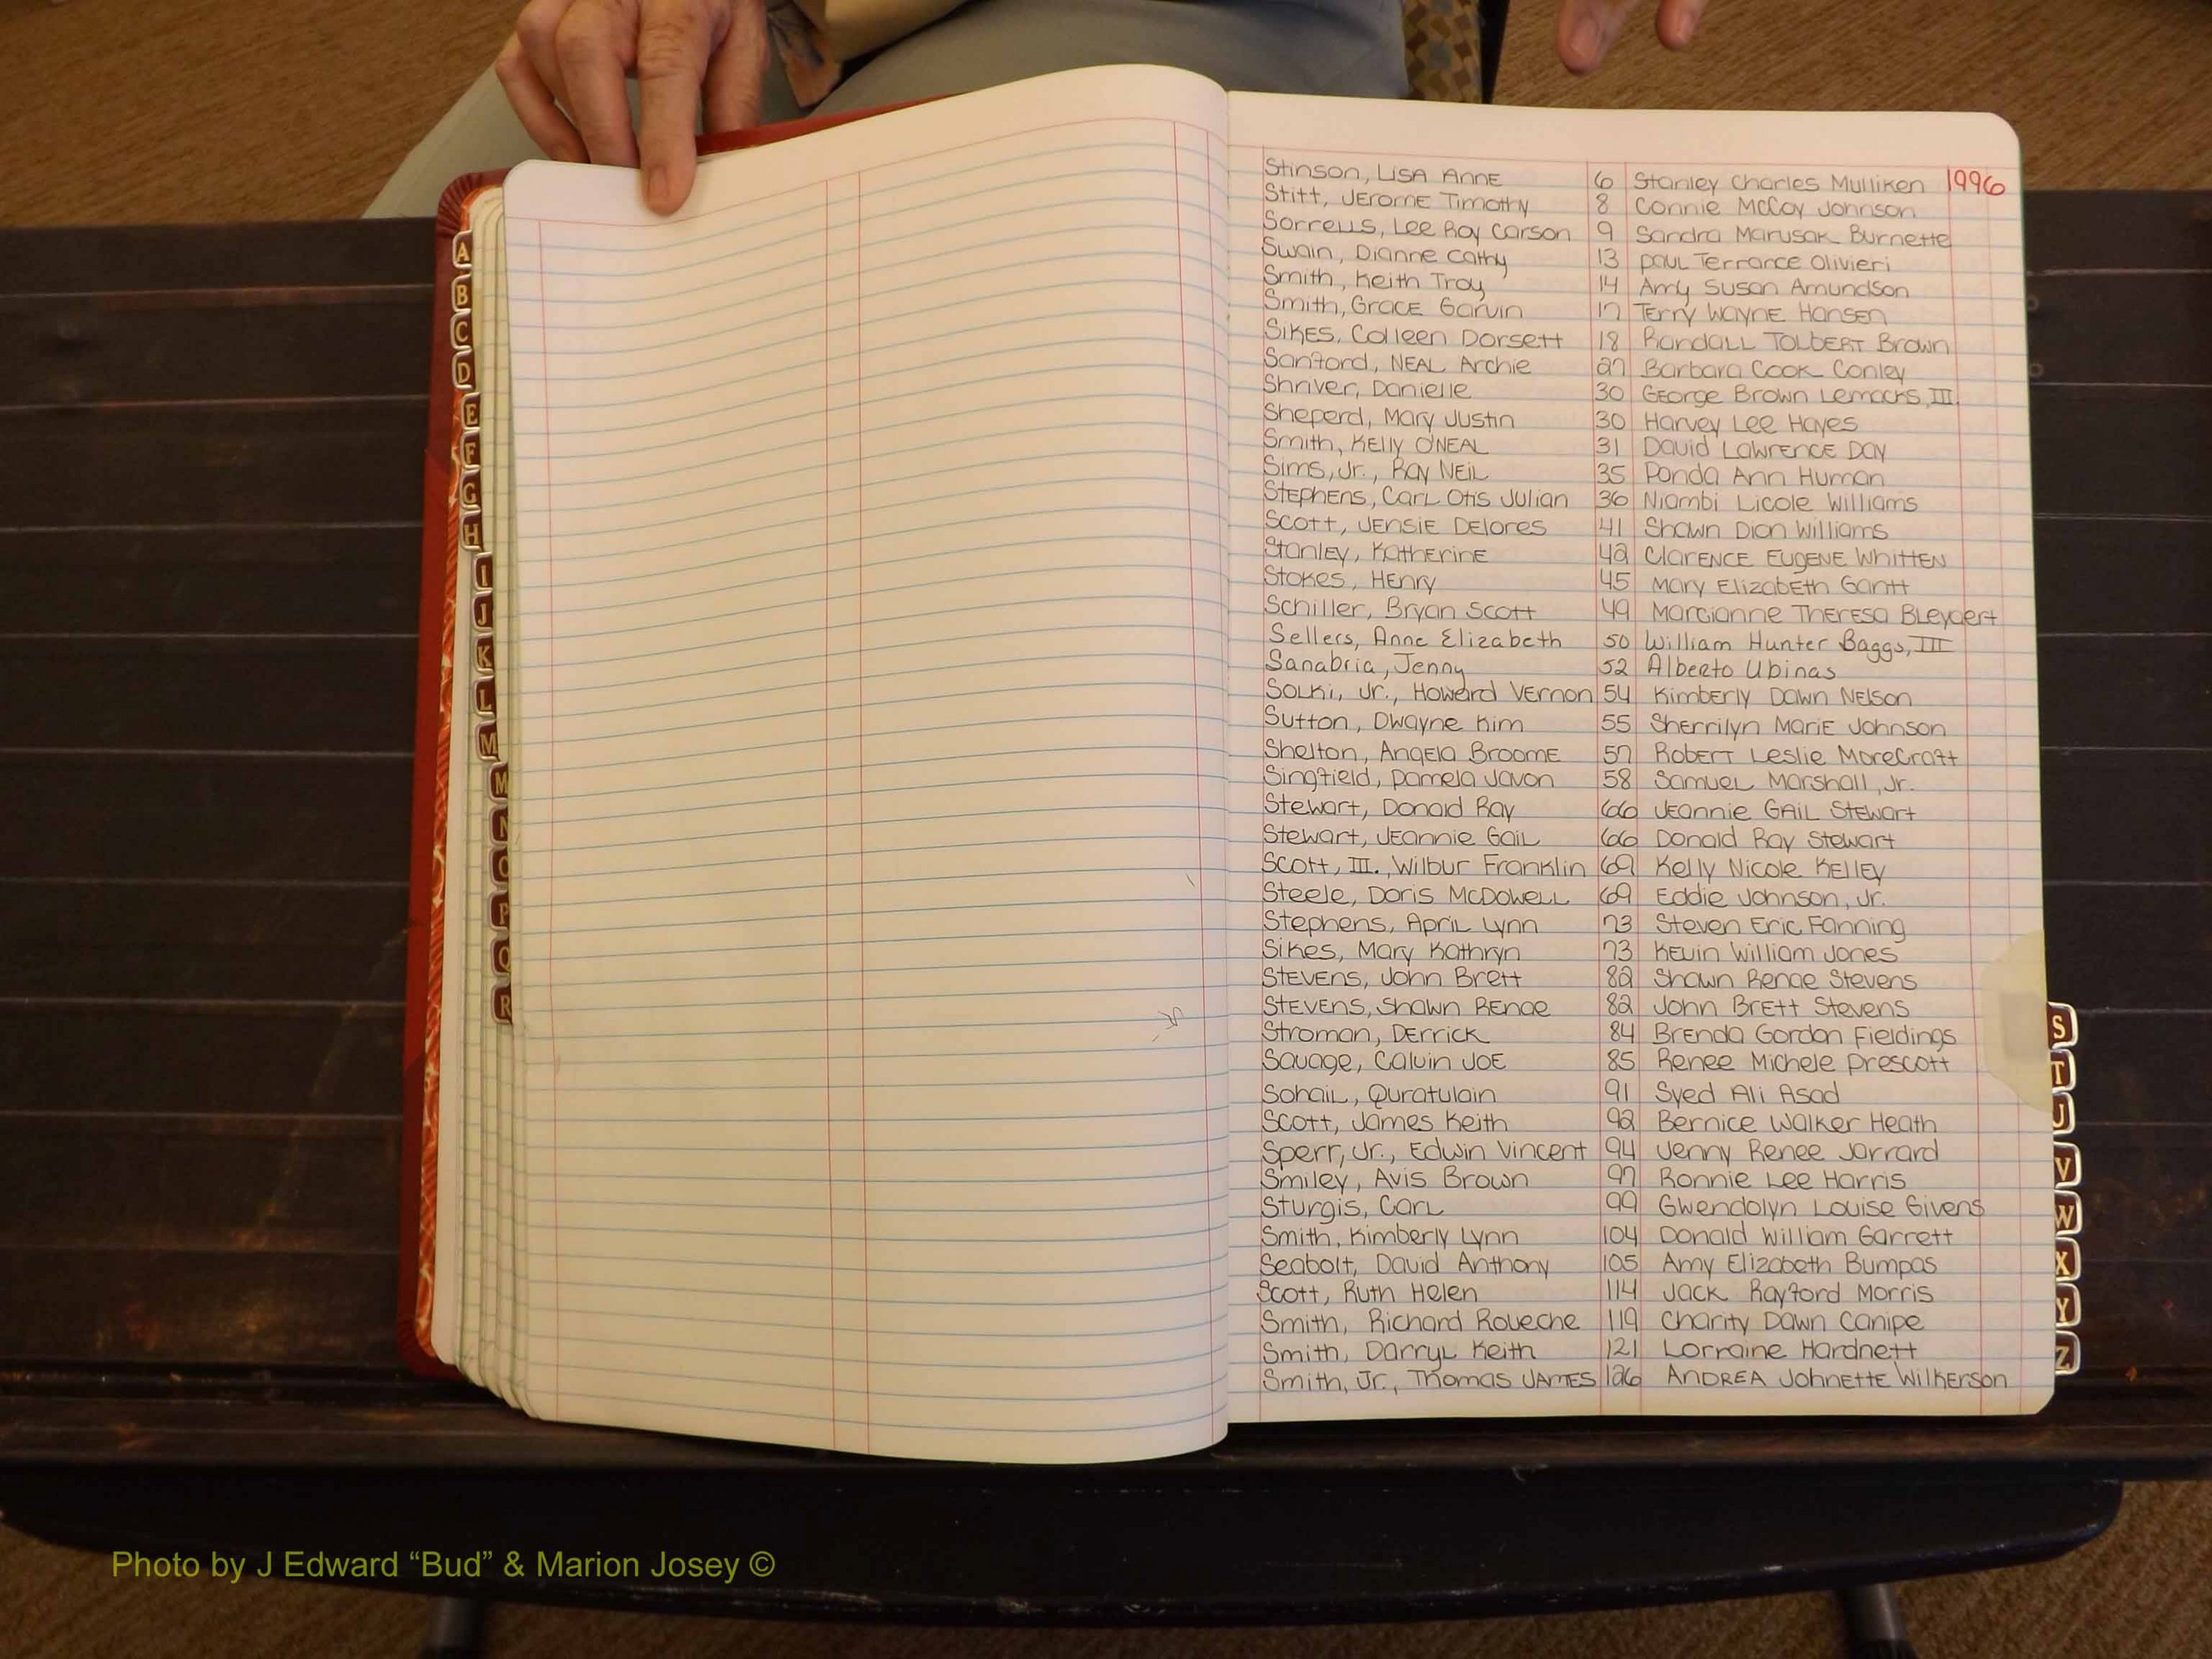 Stinson, Lisa Anne 6 Stanley Charles Mulliken 1996
Stitt, Jerome Timothy 8 Connie McCoy Johnson
Sorrells, Lee Roy Carson 9 Sandra Marusak Burnette
Swain, Dianne Cathy 13 Paul Terrance Olivieri
Smith, Keith Troy 14 Amy Susan Amundson
Smith, Grace Garvin 17 Terry Wayne Hansen
Sikes, Colleen Dorsett 18 Randall Tolbert Brown
Sanford, Neal Archie 27 Barbara Cook Conley
Shriver, Danielle 30 George Brown Lemacks, III.
Sheperd, Mary Justin 30 Harvey Lee Hayes
Smith, Kelly O'Neal 31 David Lawrence Day
Sims, Jr., Ray Neil 35 Ronda Ann Human
Stephens, Carl Otis Julian 36 Niambi Licole Williams
Scott, Jensie Delores 41 Shawn Dion Williams
Stanley, Katherine 42 Clarence Eugene Whitten
Stokes, Henry 45 Mary Elizabeth Gantt
Schiller, Bryan Scott 49 Marcianne Theresa Bleyaert
Sellers, Anne Elizabeth 50 William Hunter Baggs, III
Sanabria, Jenny 52 Alberto Ubinas
Solki, Jr., Howard Vernon 54 Kimberly Dawn Nelson
Sutton, Dwayne Kim 55 Sherrilyn Marie Johnson
Shelton, Angela Broome 57 Robert Leslie Morecraft
Singfield, Pamela Javon 58 Samuel Marshall, Jr.
Stewart, Donald Ray 66 Jeannie Gail Stewart
Stewart, Jeannie Gail 66 Donald Ray Stewart
Scott, III., Wilbur Franklin 69 Kelly Nicole Kelley
Steele, Doris McDowell 69 Eddie Johnson, Jr.
Stephens, April Lynn 73 Steven Eric Fanning
Sikes, Mary Kathryn 73 Kevin William Jones
Stevens, John Brett 82 Shawn Renae Stevens
Stevens, Shawn Renae 82 John Brett Stevens
Stroman, Derrick 84 Brenda Gordon Fieldings
Savage, Calvin Joe 85 Renee Michele Prescott
Sohail, Quratulain 91 Syed Ali Asad
Scott, James Keith 92 Bernice Walker Heath
Sperr, Jr., Edwin Vincent 94 Jenny Renee Jarrard
Smiley, Avis Brown 97 Ronnie Lee Harris
Sturgis, Carl 99 Gwendolyn Louise Givens
Smith, Kimberly Lynn 104 Donald William Garrett
Seabolt, David Anthony 105 Amy Elizabeth Bumpas
Scott, Ruth Helen 114 Jack Rayford Morris
Smith, Richard Roveche 119 Charity Dawn Canipe
Smith, Darryl Keith 121 Lorraine Hardnett
Smith, Jr., Thomas James 126 Andrea Johnette Wilkerson
A
B
C
D
E
F
G
H
I
J
K
L
M
M
N
O
P
Q
R
S
T
U
V
W
X
Y
Z
Photo by J Edward “Bud” & Marion Josey ©